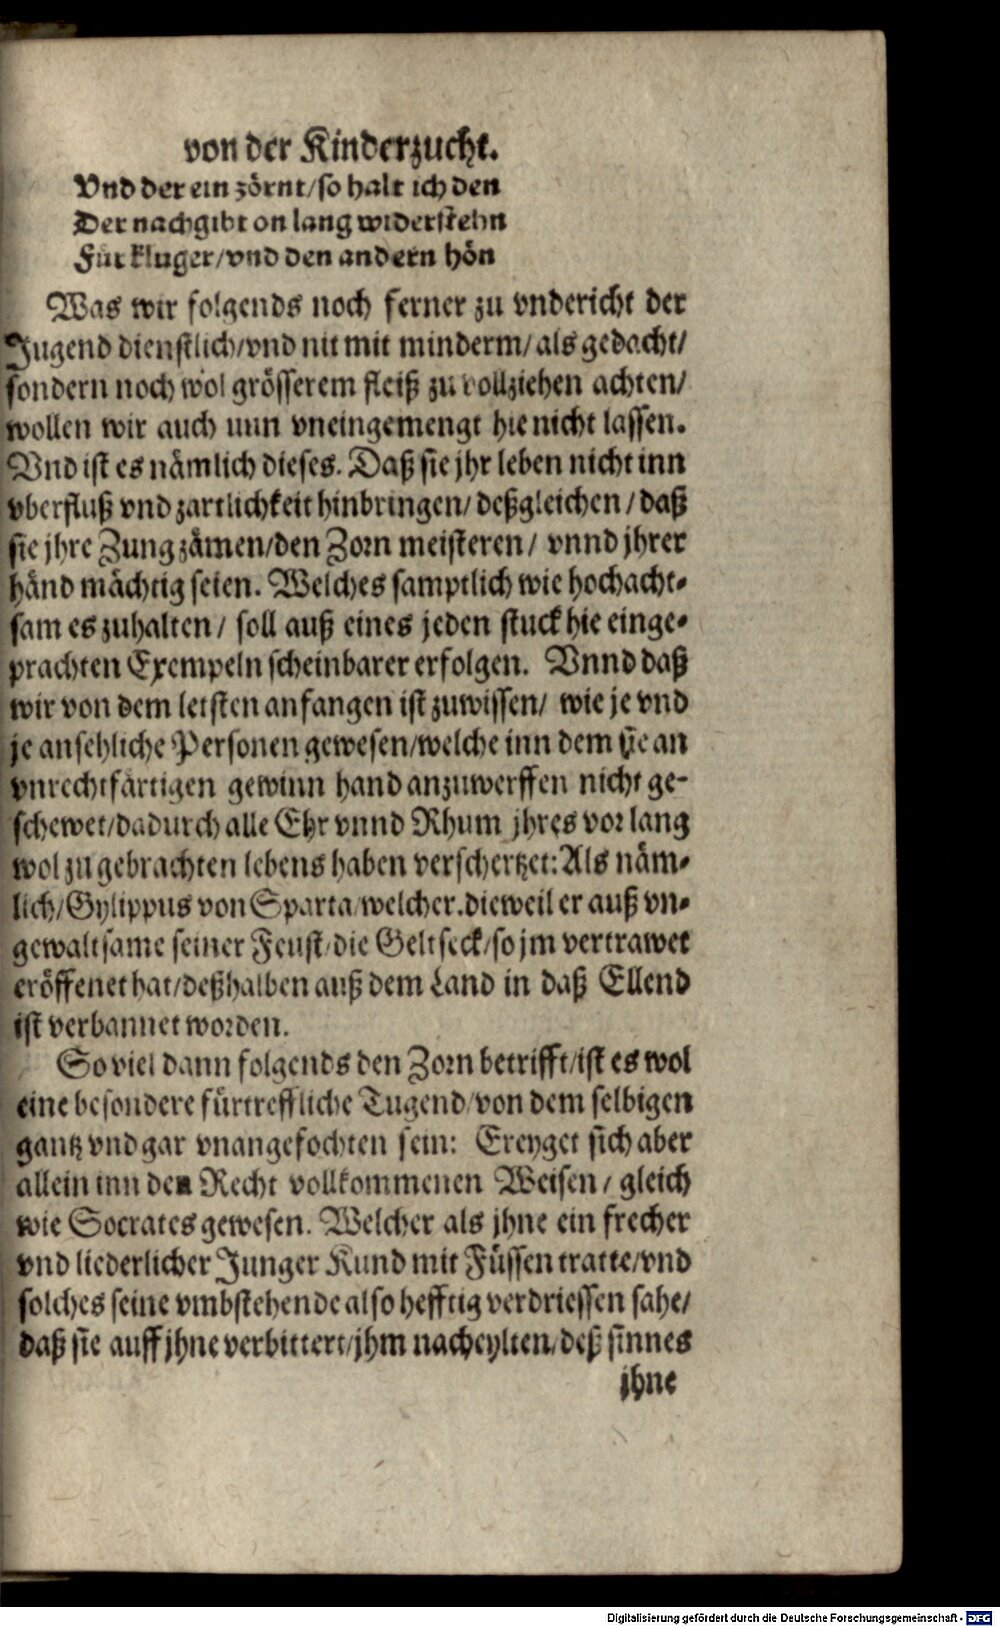 von der Kinderzucht.
Vnd der ein zörnt/so halt ich den
Der nachgibt on lang widerstehn
Für kluger/vnd den andern hön
Was wir folgends noch ferner zu vndericht der
Jugend dienstlich/vnd nit mit minderm/als gedacht/
sondern noch wol grösserem fleiß zu vollziehen achten/
wollen wir auch nun vneingemengt hie nicht lassen.
Vnd ist es nämlich dieses. Daß sie jhr leben nicht inn
vberfluß vnd zartlichkeit hinbringen/deßgleichen/daß
sie jhre Zung zämen/den Zorn meisteren/ vnnd jhrer
händ mächtig seien. Welches samptlich wie hochacht-
sam es zuhalten/ soll auß eines jeden stuck hie einge-
prachten Exempeln scheinbarer erfolgen. Vnnd daß
wir von dem letsten anfangen ist zuwissen/ wie je vnd
je ansehliche Personen gewesen/welche inn dem sie an
vnrechtfärtigen gewinn hand anzuwerffen nicht ge-
schewet/dadurch alle Ehr vnnd Rhum jhres vor lang
wol zu gebrachten lebens haben verschertzet: Als näm-
lich/Gylippus von Sparta/welcher.dieweil er auß vn-
gewaltsame seiner Feust/die Geltseck/so jm vertrawet
eröffenet hat/deßhalben auß dem Land in daß Ellend
ist verbannet worden.
So viel dann folgends den Zorn betrifft/ist es wol
eine besondere fürtreffliche Tugend/von dem selbigen
gantz vnd gar vnangefochten sein: Ereyget sich aber
allein inn den Recht vollkommenen Weisen/ gleich
wie Socrates gewesen. Welcher als jhne ein frecher
vnd liederlicher Junger Kund mit Füssen tratte/vnd
solches seine vmbstehende also hefftig verdriessen sahe/
daß sie auff jhne verbittert/jhm nacheylten/deß sinnes
jhne
Digitalisierung gefördert durch die Deutsche Forschungsgemeinschaft - DFG